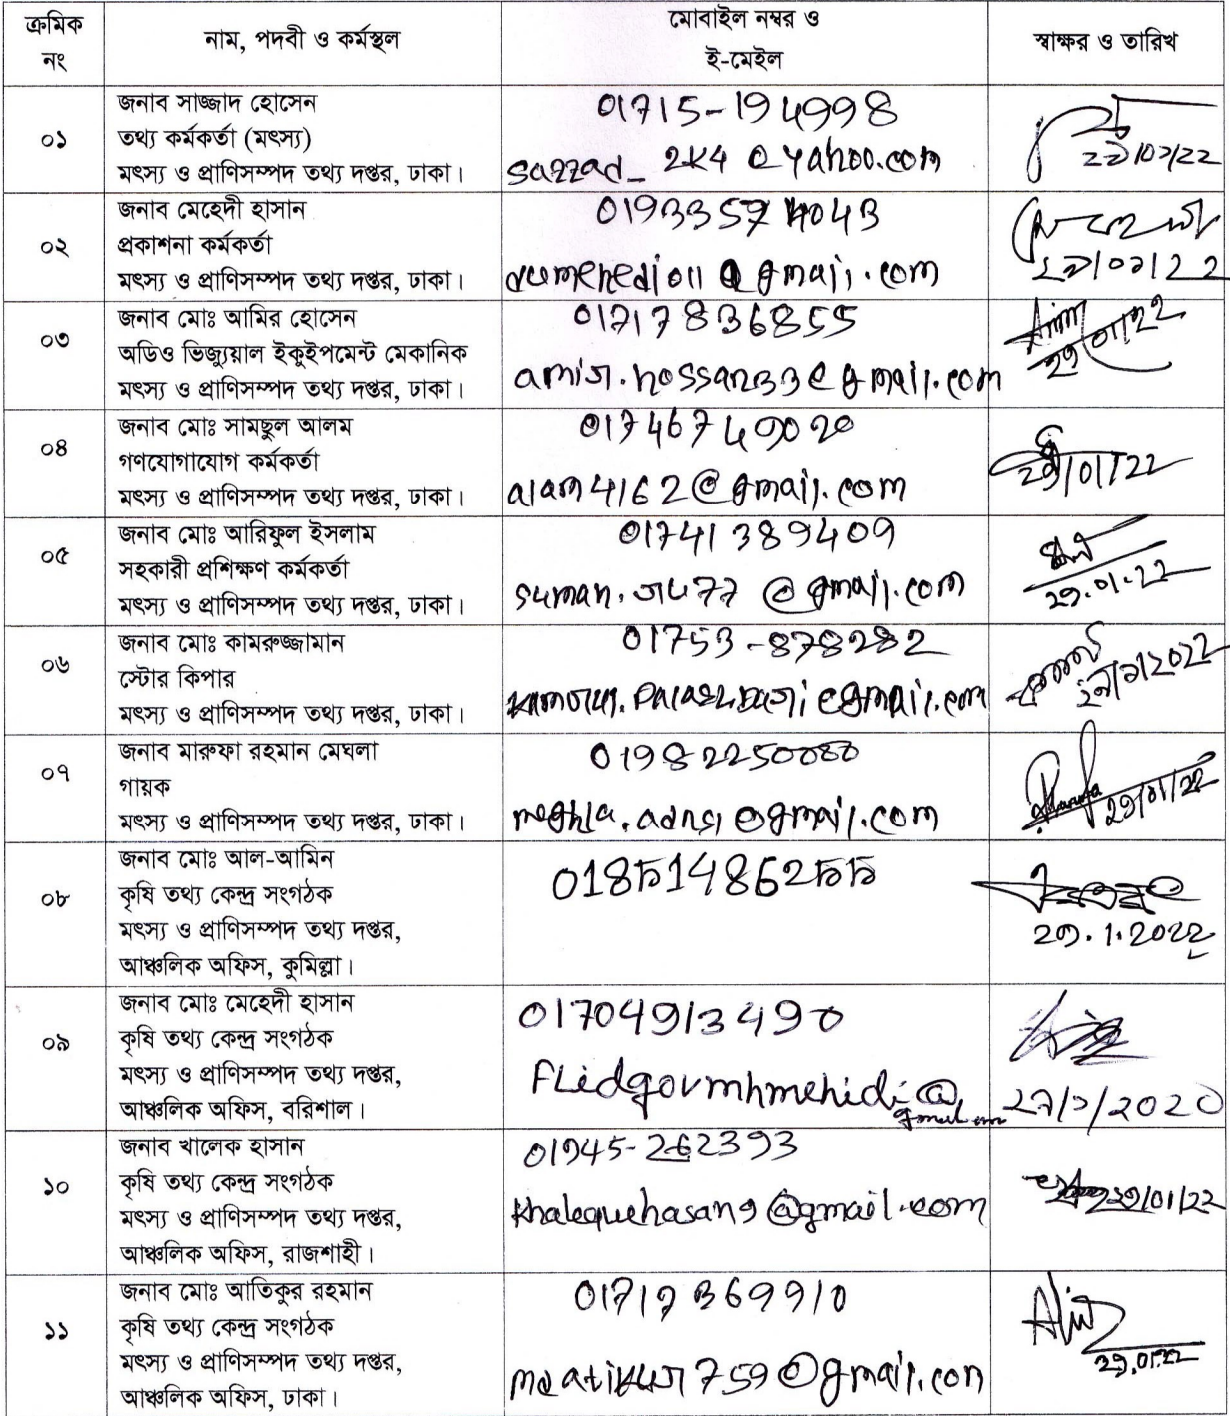 ক্রমিক
নং
নাম, পদবী ও কর্মস্থল
মোবাইল নম্বর ও
ই-মেইল
স্বাক্ষর ও তারিখ
০১
জনাব সাজ্জাদ হোসেন
তথ্য কর্মকর্তা (মৎস্য)
মৎস্য ও প্রাণিসম্পদ তথ্য দপ্তর, ঢাকা।
01715-194998
sazzad_2k4@yahoo.com
০২
জনাব মেহেদী হাসান
প্রকাশনা কর্মকর্তা
মৎস্য ও প্রাণিসম্পদ তথ্য দপ্তর, ঢাকা।
01933574043
dumehedi011@gmail.com
০৩
জনাব মোঃ আমির হোসেন
অডিও ভিজ্যুয়াল ইকুইপমেন্ট মেকানিক
মৎস্য ও প্রাণিসম্পদ তথ্য দপ্তর, ঢাকা।
01717836855
amir.hossan33@gmail.com
29/01/22
০৪
জনাব মোঃ সামছুল আলম
গণযোগাযোগ কর্মকর্তা
মৎস্য ও প্রাণিসম্পদ তথ্য দপ্তর, ঢাকা।
01746749020
alam4162@gmail.com
29/01/22
০৫
জনাব মোঃ আরিফুল ইসলাম
সহকারী প্রশিক্ষণ কর্মকর্তা
মৎস্য ও প্রাণিসম্পদ তথ্য দপ্তর, ঢাকা।
01741389409
suman.ru77@gmail.com
29.01.22
০৬
জনাব মোঃ কামরুজ্জামান
স্টোর কিপার
মৎস্য ও প্রাণিসম্পদ তথ্য দপ্তর, ঢাকা।
01753-878282
০৭
জনাব মারুফা রহমান মেঘলা
গায়ক
মৎস্য ও প্রাণিসম্পদ তথ্য দপ্তর, ঢাকা।
01982250080
29/01/22
০৮
জনাব মোঃ আল-আমিন
কৃষি তথ্য কেন্দ্র সংগঠক
মৎস্য ও প্রাণিসম্পদ তথ্য দপ্তর,
আঞ্চলিক অফিস, কুমিল্লা।
01851486255
29.1.2022
০৯
জনাব মোঃ মেহেদী হাসান
কৃষি তথ্য কেন্দ্র সংগঠক
মৎস্য ও প্রাণিসম্পদ তথ্য দপ্তর,
আঞ্চলিক অফিস, বরিশাল।
01704913490
Flidgovmhmehidi@
gmail.com
১০
জনাব খালেক হাসান
কৃষি তথ্য কেন্দ্র সংগঠক
মৎস্য ও প্রাণিসম্পদ তথ্য দপ্তর,
আঞ্চলিক অফিস, রাজশাহী।
01945-262393
khalequehasan9@gmail.com
29/01/22
১১
জনাব মোঃ আতিকুর রহমান
কৃষি তথ্য কেন্দ্র সংগঠক
মৎস্য ও প্রাণিসম্পদ তথ্য দপ্তর,
আঞ্চলিক অফিস, ঢাকা।
01717369910
mdatikur759@gmail.com
29.01.22